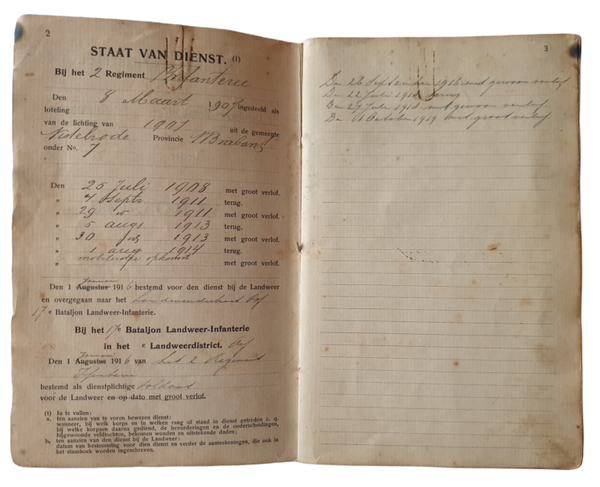 2
STAAT VAN DIENST. (1)
Bij het 2 Regiment Infanterie
Den 8 Maart 1907 ingedeeld als
loteling
van de lichting van 1907 uit de gemeente
Nistelrode Provincie NBrabant
onder No. 7
Den 25 Juli 1908 met groot verlof.
" 4 Sept 1911 terug.
" 29 " 1911 met groot verlof.
" 5 aug 1913 terug.
" 30 1913 met groot verlof.
" 1 aug 1914 terug.
" met groot verlof.
Januari
Den 1 Augustus 1916 bestemd voor den dienst bij de Landweer
en overgegaan naar het
17e Bataljon Landweer-Infanterie.
Bij het 17e Bataljon Landweer-Infanterie
in het e Landweerdistrict.
Januari
Den 1 Augustus 1916 van het 2 Regiment
Infanterie
bestemd als dienstplichtige soldaat
voor de Landweer en op dato met groot verlof.
(1) In te vullen:
a. ten aanzien van te voren bewezen dienst:
wanneer, bij welk korps en in welken rang of stand in dienst getreden c. q.
bij welke korpsen daarna gediend, de bevorderingen en de onderscheidingen,
bijgewoonde veldtochten, bekomen wonden en uitstekende daden;
b. ten aanzien van den dienst bij de Landweer:
datum van bestemming voor dien dienst en verder de aanteekeningen, die ook in
het stamboek worden ingeschreven.
3
De 26 September 1918 met gewoon verlof
De 22 Juli 1918 terug
De 27 Juli 1918 met gewoon verlof
De 1 October 1919 met groot verlof